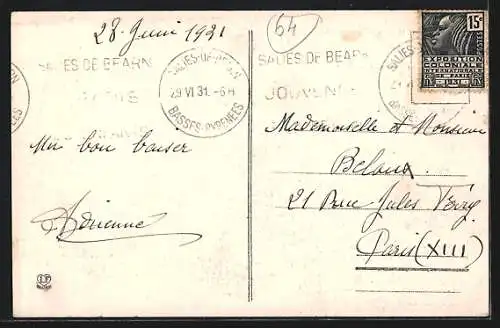 28 Juin 1931
64
SALIES DE BEARN
SALIES-DE-BEARN
29 VI 31. -6 H
BASSES-PYRENEES
SALIES DE BEARN
JOUVENCE
15c
POSTES
EXPOSITION
COLONIALE
INTERNATIONALE
Mademoiselle et Monsieur
Beloux
21 Rue Jules Verry
Paris (XIII)
Un bon baiser
Adrienne